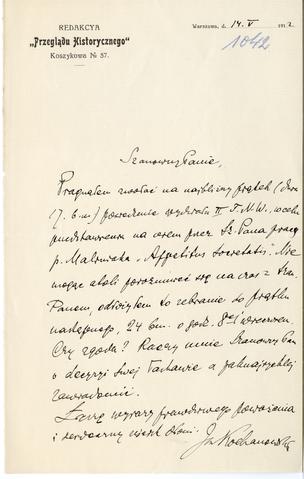 REDAKCYA
„Przeglądu Historycznego"
Koszykowa № 37.
Warszawa, d. 14. V 1912
1042
Szanowny Panie,
Pragnąłem zwołać na najbliższy piątek (dn.
17. b.m.) posiedzenie wydziału II T.N.W., w celu
przedstawienia na niem przez Sz. Pana pracy
p. Malewskiego „Appetitus Societatis". Nie
mogąc atoli porozumieć się na czas z Sza.
Panem, odłożyłem to zebranie do piątku
następnego, 24 bm. o godz. 8ej wieczorem.
Czy zgoda? Raczy mnie Szanowny Pan
o decyzji swej łaskawie a jaknajszybciej
zawiadomić.
Łączę wyrazy prawdziwego poważania
i serdeczny uścisk dłoni.
Jn Kochanowski